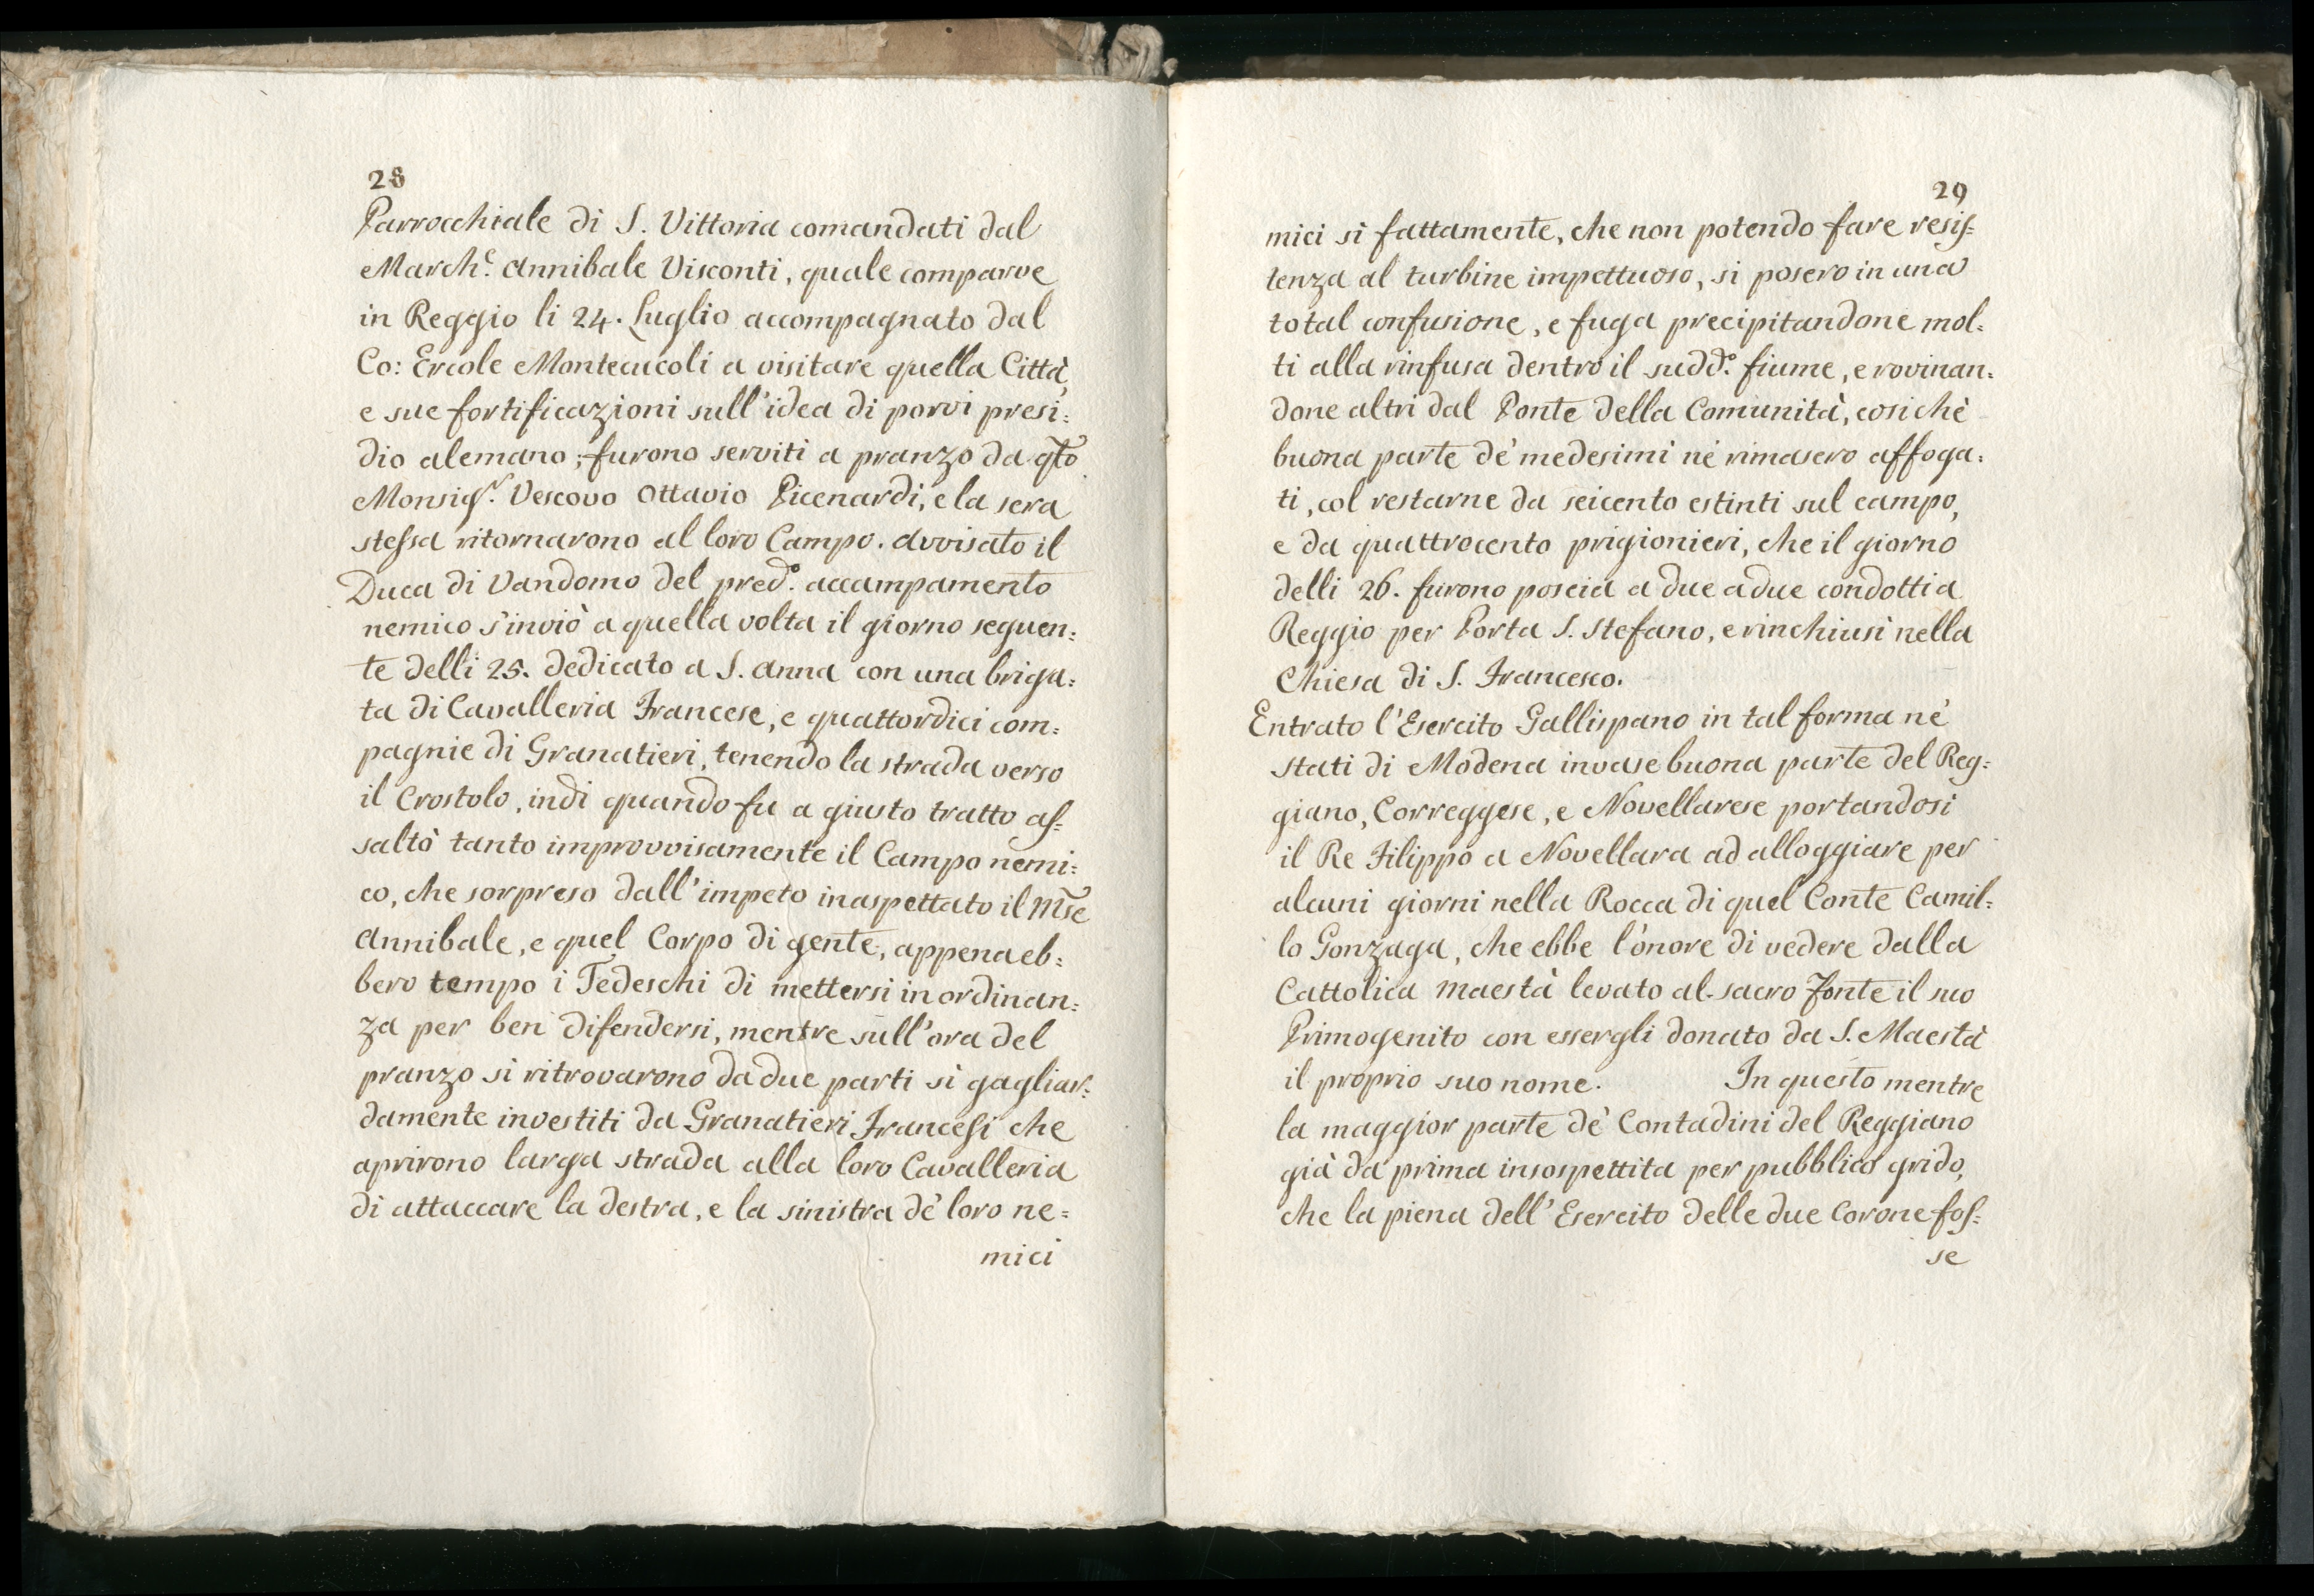 28
Parrocchiale di S. Vittoria comandati dal
March.e Annibale Visconti, quale comparve
in Reggio li 24. Luglio accompagnato dal
Co: Ercole Montecucoli a visitare quella Città,
e sue fortificazioni sull'idea di porvi presi:
dio alemano; furono serviti a pranzo da qto
Monsigr. Vescovo Ottavio Picenardi, e la sera
stessa ritornarono al loro Campo. Avvisato il
Duca di Vandomo del predo. accampamento
nemico s'inviò a quella volta il giorno seguen:
te delli 25. dedicato a S. Anna con una briga:
ta di Cavalleria Francese, e quattordici com:
pagnie di Granatieri, tenendo la strada verso
il Crostolo, indi quando fu a giusto tratto as:
saltò tanto improvvisamente il Campo nemi:
co, che sorpreso dall'impeto inaspettato il Mse
Annibale, e quel Corpo di gente, appena eb:
bero tempo i Tedeschi di mettersi in ordinan:
za per ben difendersi, mentre sull'ora del
pranzo si ritrovarono da due parti sì gagliar:
damente investiti da Granatieri Francesi che
aprirono larga strada alla loro Cavalleria
di attaccare la destra, e la sinistra de' loro ne=
mici
29
mici sì fattamente, che non potendo fare resis=
tenza al turbine impettuoso, si posero in una
total confusione, e fuga precipitandone mol:
ti alla rinfusa dentro il suddo. fiume, e rovinan:
done altri dal Ponte della Comunità, cosichè
buona parte de' medesimi nè rimasero affoga:
ti, col restarne da seicento estinti sul campo,
e da quattrocento prigionieri, che il giorno
delli 26. furono poscia a due a due condotti a
Reggio per Porta S. Stefano, e rinchiusi nella
Chiesa di S. Francesco.
Entrato l'Esercito Gallispano in tal forma ne'
stati di Modena invase buona parte del Reg:
giano, Correggese, e Novellarese portandosi
il Re Filippo a Novellara ad alloggiare per
alcuni giorni nella Rocca di quel Conte Camil:
lo Gonzaga, che ebbe l'onore di vedere dalla
Cattolica Maestà levato al sacro Fonte il suo
Primogenito con essergli donato da S. Maestà
il proprio suo nome. In questo mentre
la maggior parte de' Contadini del Reggiano
già da prima insospettita per pubblico grido,
che la piena dell'Esercito delle due Corone fos=
se